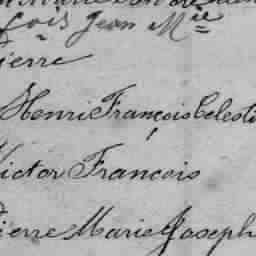 çois Jean Mie
ierre
Henri François Celesti
ictor Francois
ierre Marie Joseph